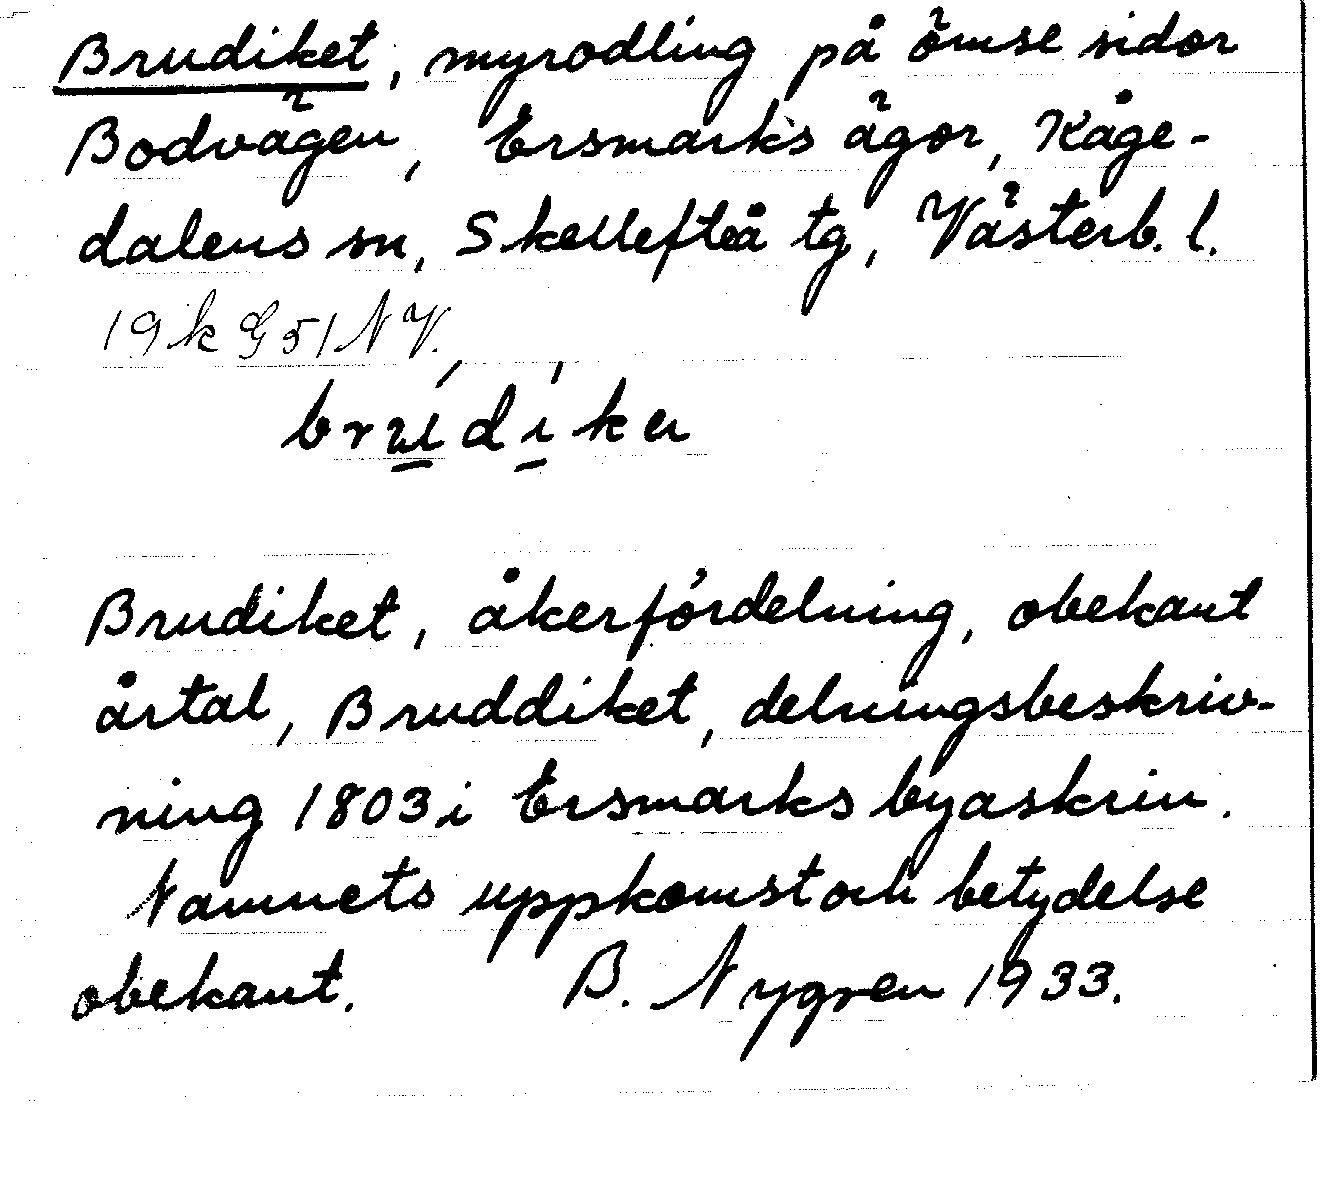 Brudiket, myrodling på ömse sidor
Bodvägen, Ersmarks ägor, Kåge-
dalens sn, Skellefteå tg, Västerb. l.
19k G51 NV.
brúdíker
Brudiket, åkerfördelning, obekant
årtal, Bruddiket, delningsbeskriv-
ning 1803 i Ersmarks byaskrin.
Namnets uppkomst och betydelse
obekant. B. Nygren 1933.